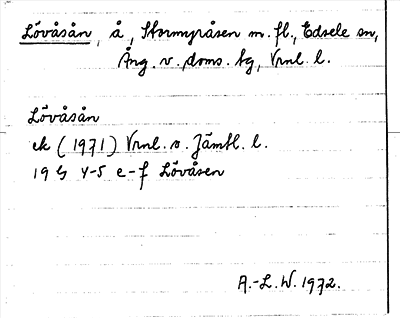 Lövåsån, å, Stormyråsen m. fl., Edsele sn,
Ång. v. doms. tg, Vrnl. l.
Lövåsån
ek (1971) Vrnl. o. Jämtl. l.
19 G 4-5 e-f Lövåsen
A.-L.W. 1972.